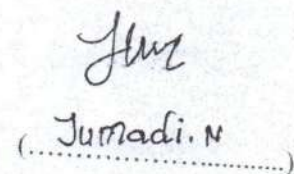 (Jumadi. N)